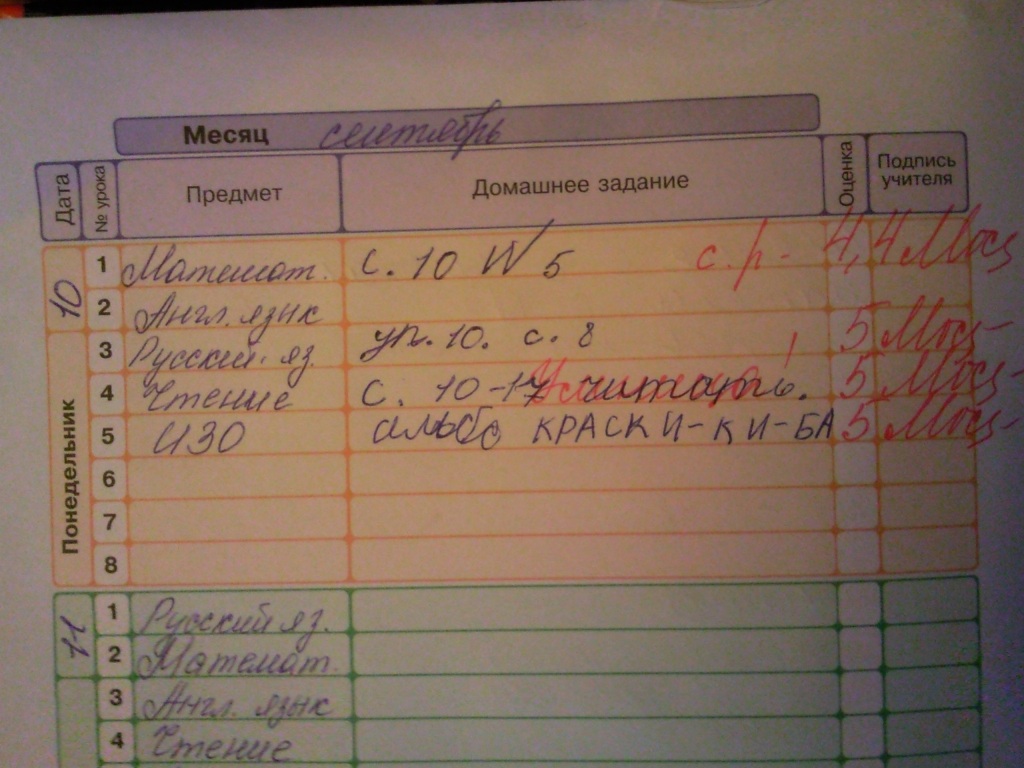 Месяц сентябрь
Дата № урока Предмет Домашнее задание Оценка Подпись учителя
10 Понедельник
1 Математ. с. 10 № 5 с.р. 4,4
2 Англ. язык
3 Русский яз. уп. 10. с. 8 5
4 Чтение с. 10-17 читать. Умница! 5
5 ИЗО альбо КРАСКИ-КИ-БА 5
6
7
8
11
1 Русский яз.
2 Математ.
3 Англ. язык
4 Чтение